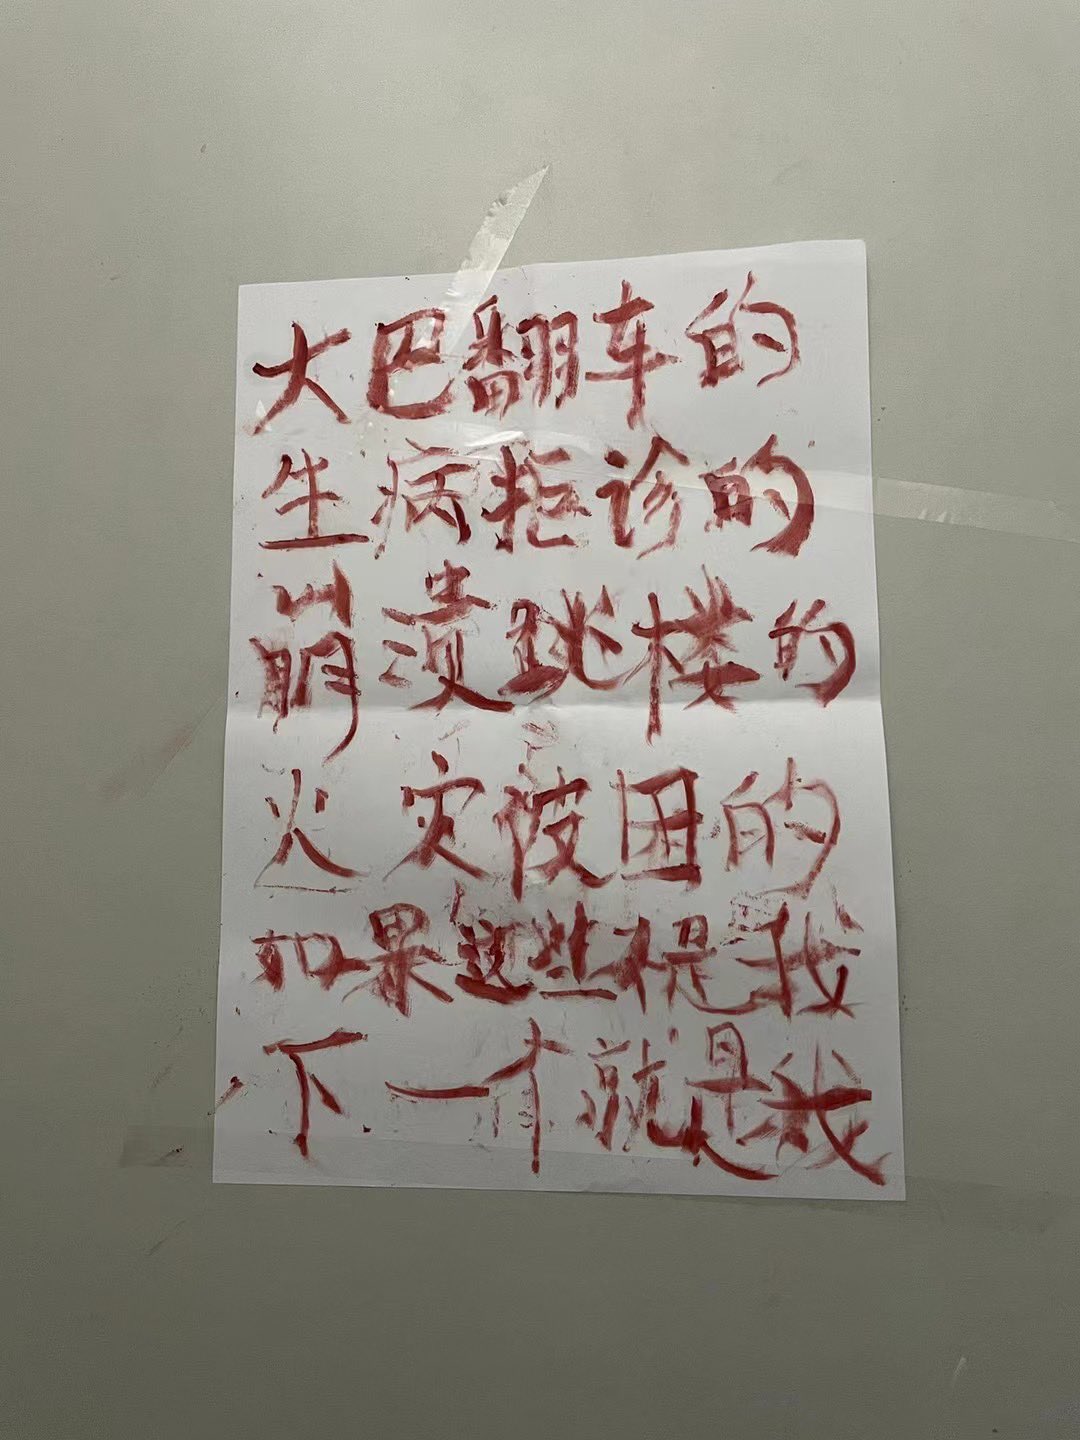 大巴翻车的
生病拒诊的
崩溃跳楼的
火灾被困的
如果这些不是我
下一个就是我